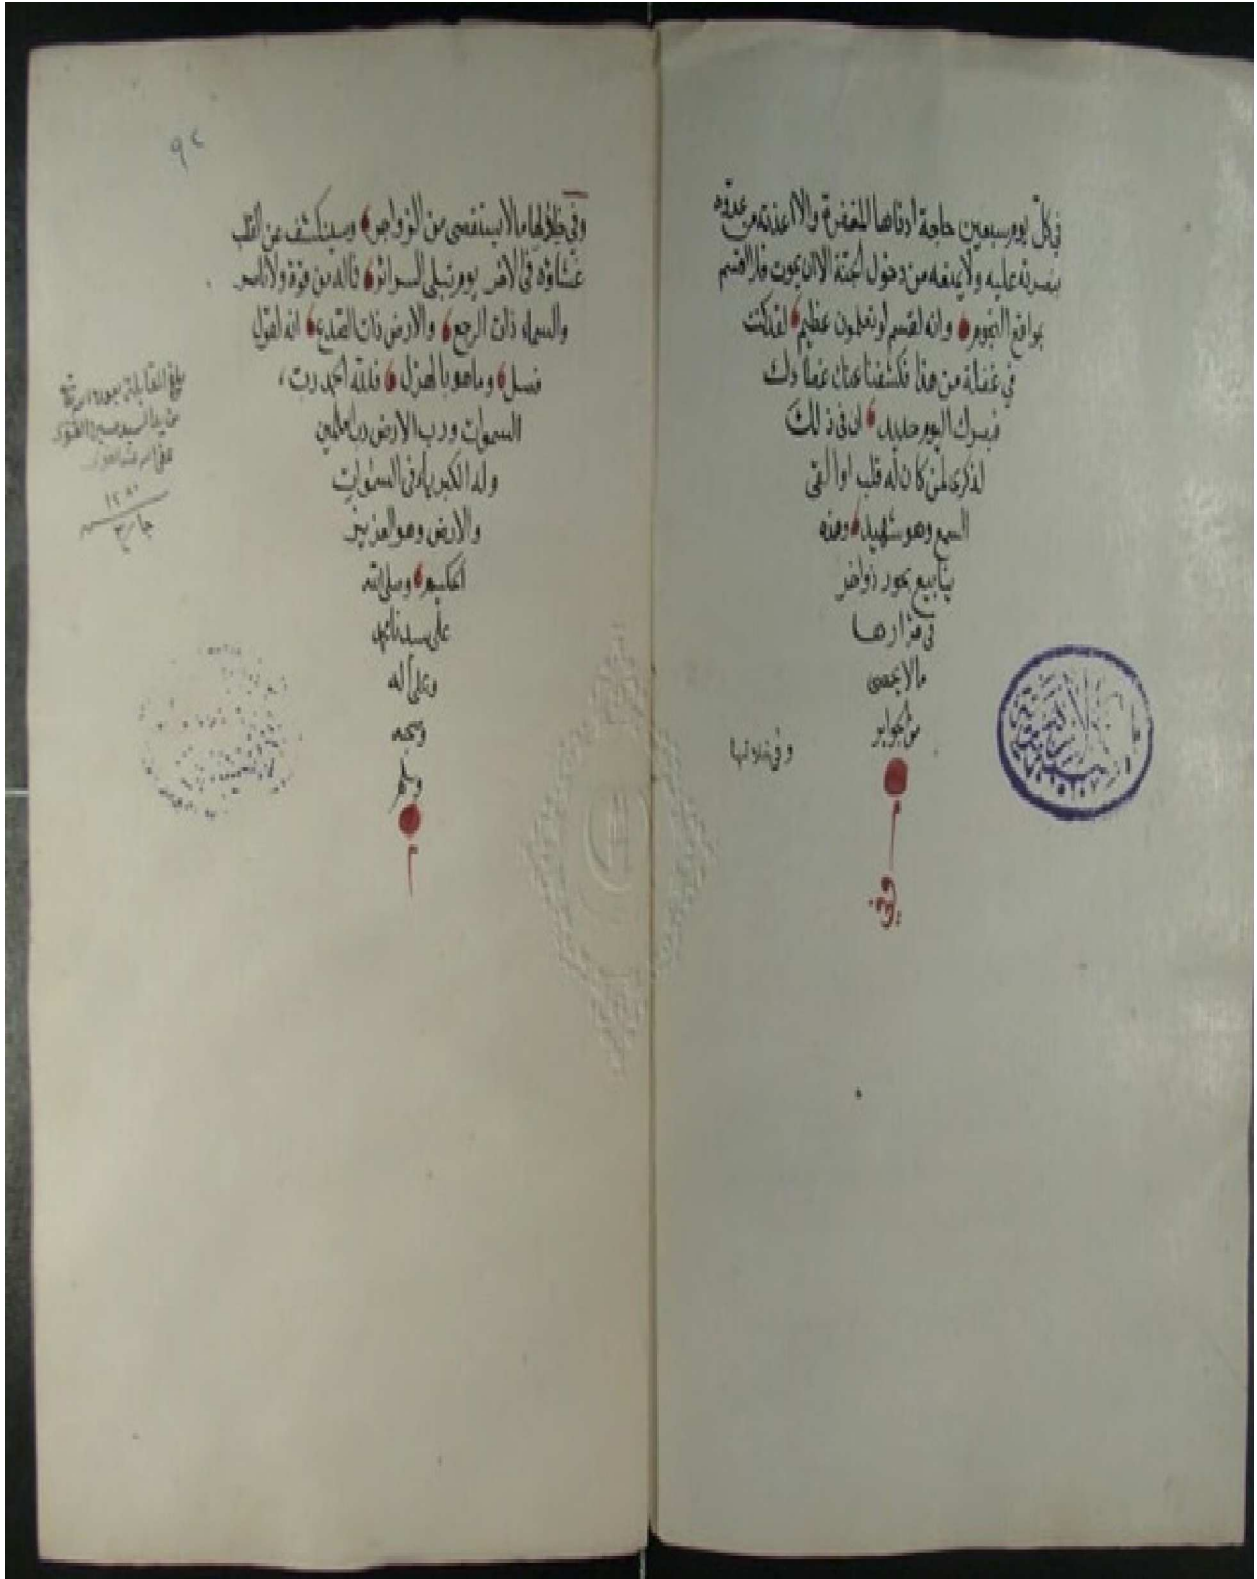 في كل يوم سبعين حاجة ادناها المغفرة والا اعذته من عدوه
بنصرته عليه ولا يمنعه من دخول الجنة الا ان يموت فلا اقسم
بمواقع النجوم وانه لقسم لو تعلمون عظيم لقد كنت
في غفلة من هذا فكشفنا عنك غطاءك
فبصرك اليوم حديد ان في ذلك
لذكرى لمن كان له قلب او القى
السمع وهو شهيد وهذه
ينابيع بحور زواخر
في قرارها
مالا يحصى
من الجواهر
وفي
وفي خلالها
٩٢
وفي خلالها مالا يستقصى من الزواجر وسينكشف عن القلب
غشاؤه في الاخر يوم تبلى السرائر فماله من قوة ولا ناصر
والسماء ذات الرجع والارض ذات الصدع انه لقول
فصل وما هو بالهزل فلله الحمد رب
السموات ورب الارض رب العلمين
وله الكبرياء في السموات
والارض وهو العزيز
الحكيم وصلى الله
على سيدنا محمد
وعلى اله
وصحبه
وسلم
بلغ المقابلة
السيد حسين
١٢٨٠